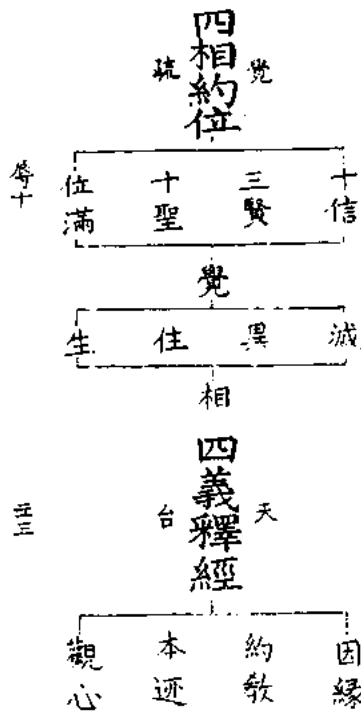 四相約位
覺
疏
十信
三賢
十聖
位滿
覺
滅
異
住
生
相
四義釋經
天
台
因緣
約教
本迹
觀心